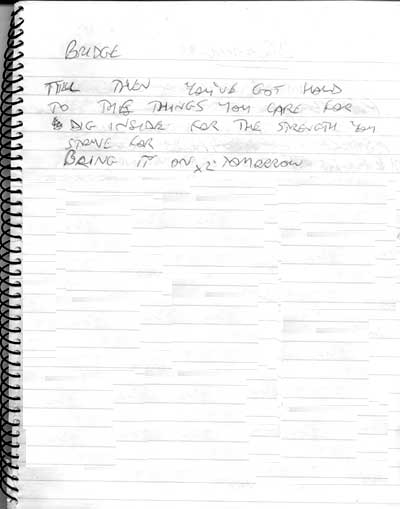 BRIDGE
TILL THEN YOU'VE GOT HOLD
TO THE THINGS YOU CARE FOR
DIG INSIDE FOR THE STRENGTH YOU
STRIVE FOR
BRING IT ON x2 TOMORROW